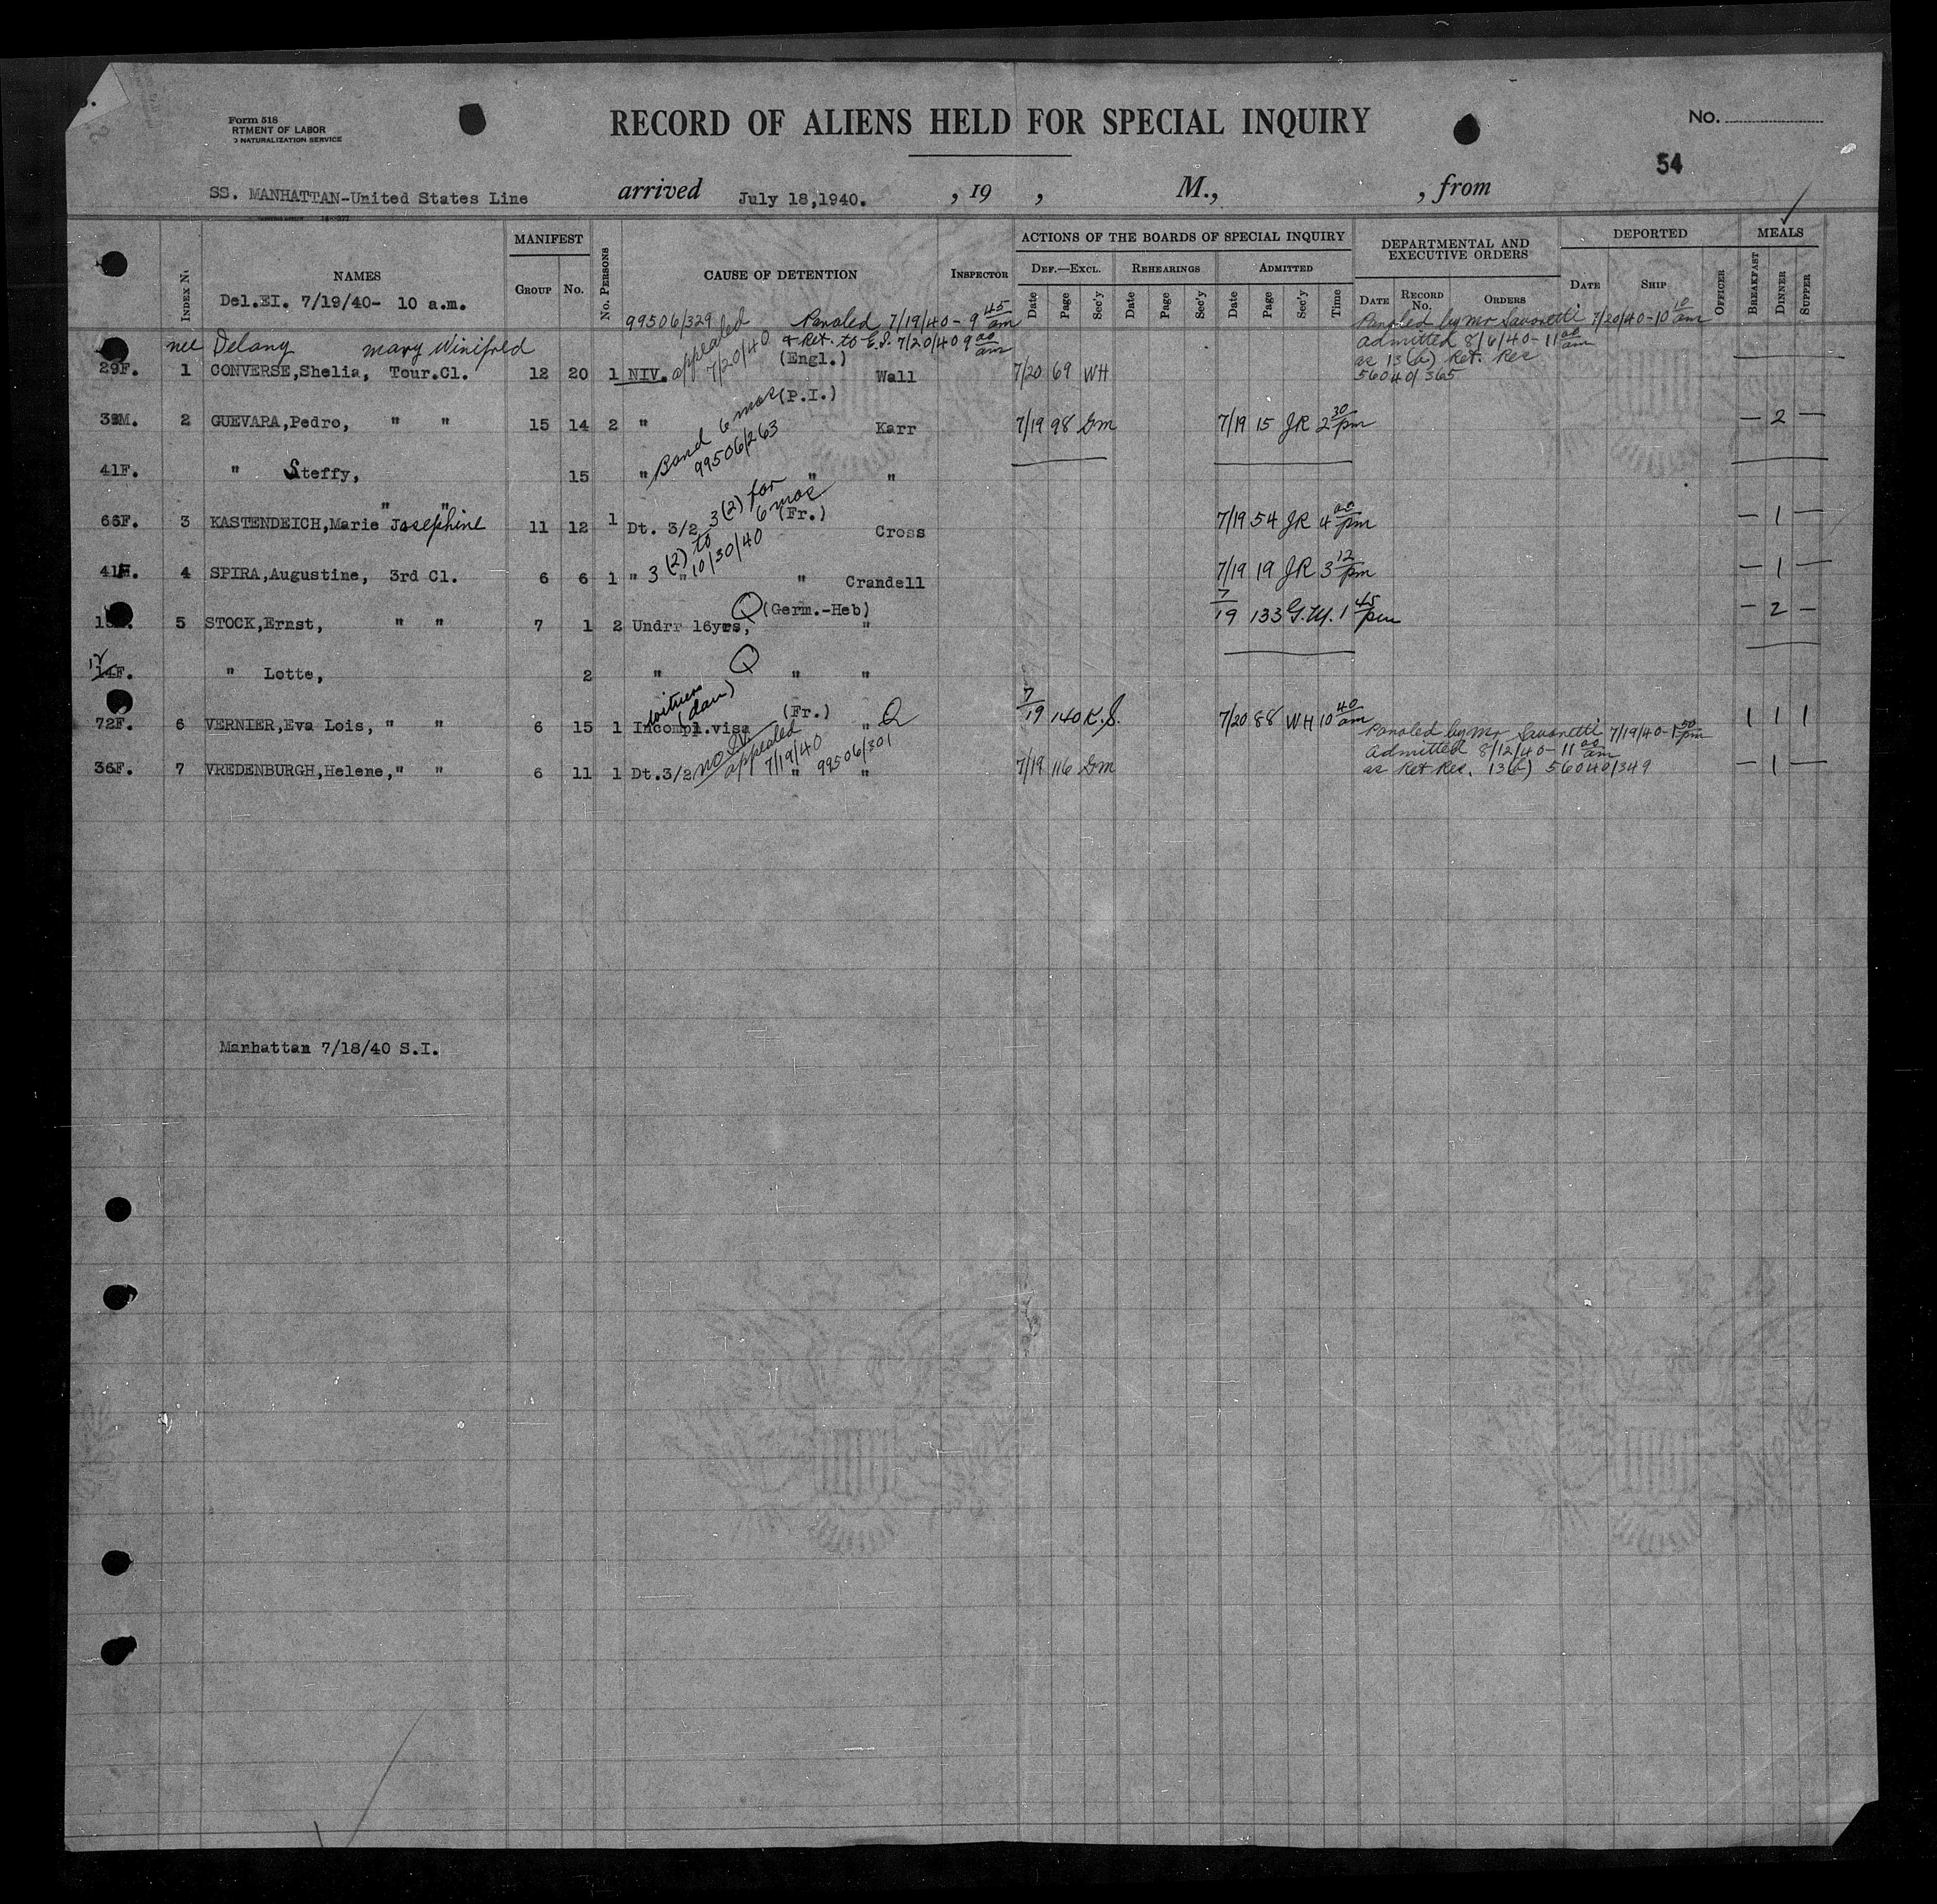 Form 518
RTMENT OF LABOR
NATURALIZATION SERVICE
RECORD OF ALIENS HELD FOR SPECIAL INQUIRY
No.
54
SS. MANHATTAN-United States Line arrived July 18,1940. , 19 , M., , from
MANIFEST ACTIONS OF THE BOARDS OF SPECIAL INQUIRY DEPARTMENTAL AND EXECUTIVE ORDERS DEPORTED MEALS
INDEX No. NAMES GROUP No. No. PERSONS CAUSE OF DETENTION INSPECTOR DEF.—EXCL. REHEARINGS ADMITTED
Date Page Sec'y Date Page Sec'y Date Page Sec'y Time DATE RECORD No. ORDERS DATE SHIP OFFICER BREAKFAST DINNER SUPPER
Del.EI. 7/19/40- 10 a.m.
99506/329 Paroled 7/19/40 - 9 45 am Paroled by Mr Savoretti 7/20/40-10 10 am
nee Delany Mary Winifred appealed 7/20/40 & Ret. to E.I. 7/20/40 9 00 am admitted 8/6/40-11 00 am
29F. 1 CONVERSE,Shelia, Tour.Cl. 12 20 1 NIV. (Engl.) Wall 7/20 69 WH as 13(b) Ret. Res
56040/365
M. 2 GUEVARA,Pedro, " " 15 14 2 " (P.I.) Karr 7/19 98 GM 7/19 15 JR 2 30 pm — 2 —
Bond 6 mos 99506/263
41F. " Steffy, " " 15 " " "
66F. 3 KASTENDEICH,Marie Josephine 11 12 1 Dt. 3/2 3(2) for 6 mos (Fr.) Cross 7/19 54 JR 4 00 pm — 1 —
4 SPIRA,Augustine, 3rd Cl. 6 6 1 " " 3(2) to 10/30/40 " Crandell 7/19 19 JR 3 12 pm — 1 —
5 STOCK,Ernst, " " 7 1 2 Undrr 16yrs, Q (Germ.-Heb) " 7/19 133 G.M. 1 45 pm — 2 —
14F. " Lotte, 2 " Q " "
72F. 6 VERNIER,Eva Lois, " " 6 15 1 Incompl.visa witness (dau) (Fr.) " Q 7/19 140 K.S. 7/20 88 WH 10 40 am 1 1 1
Paroled by Mr Savoretti 7/19/40-1 50 pm
admitted 8/12/40-11 00 am
36F. 7 VREDENBURGH,Helene," " 6 11 1 Dt.3/2 appealed 7/19/40 99506/301 " " 7/19 116 GM as Ret Res. 13(b) 56040/349 — 1 —
Manhattan 7/18/40 S.I.